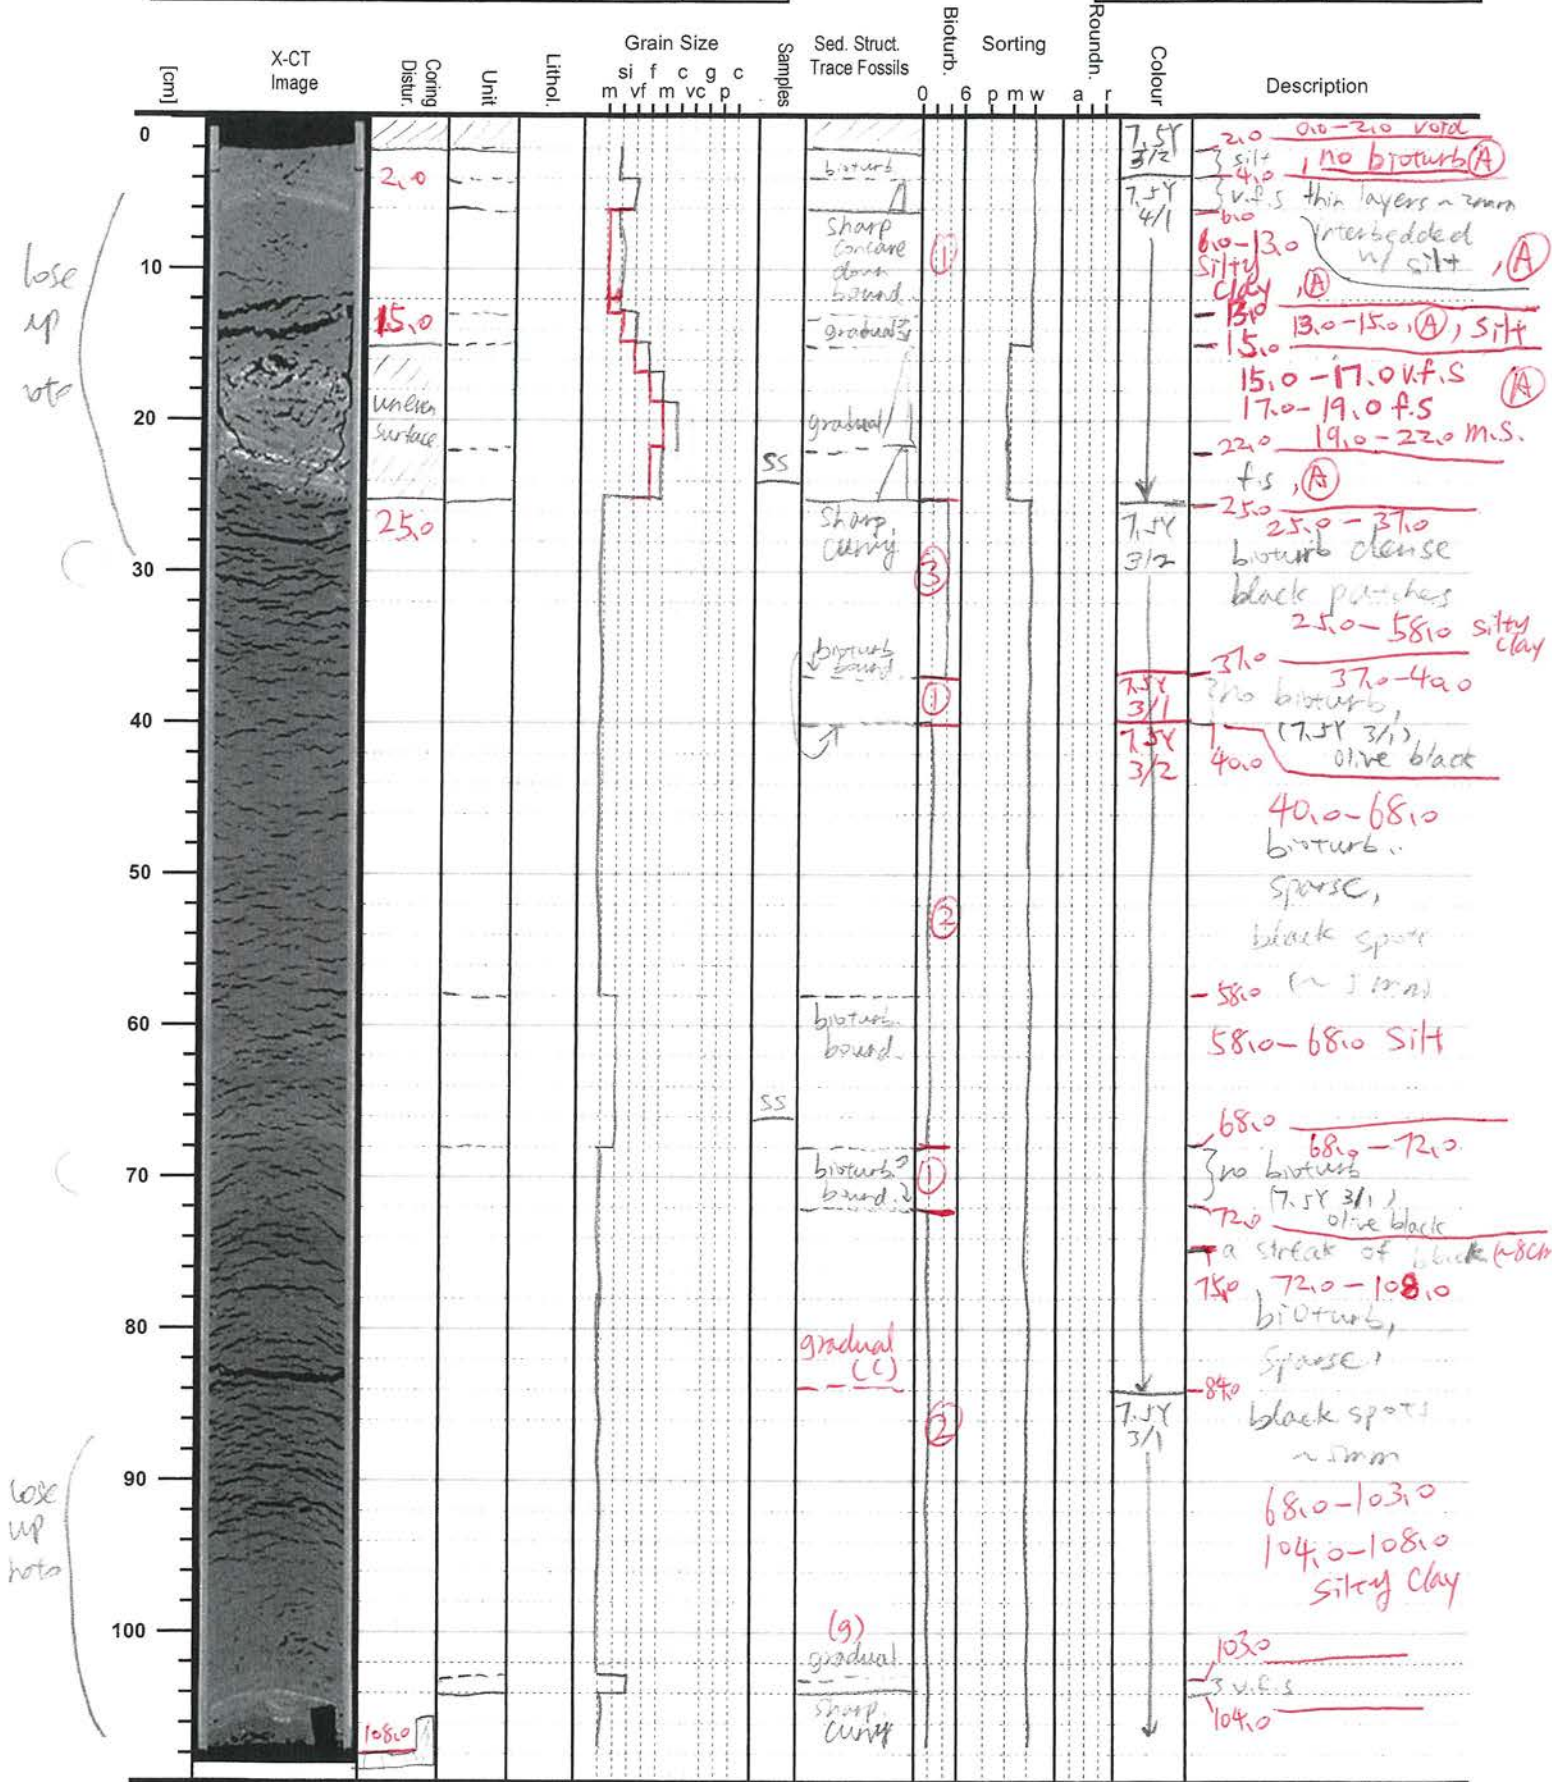 [cm]
X-CT
Image
Coring
Distur.
Unit
Lithol.
Grain Size
si f c g c
m vf m vc p
Samples
Sed. Struct.
Trace Fossils
Bioturb.
0 6
Sorting
p m w
Roundn.
a r
Colour
Description
0
10
20
30
40
50
60
70
80
90
100
lose
up
oto
lose
up
hoto
2.0
15.0
uneven
surface
25.0
108.0
SS
SS
bioturb
sharp
concave
down
bound.
gradual
gradual
sharp,
curvy
bioturb
bound
bioturb.
bound.
bioturb
bound.
gradual
(c)
(g)
gradual
sharp
curvy
1
3
1
2
1
2
7.5Y
3/2
7.5Y
4/1
7.5Y
3/2
7.5Y
3/1
7.5Y
3/2
7.5Y
3/1
2.0 0.0-2.0 void
} silt , no bioturb (A)
4.0
} v.f.s thin layers ~ 2mm
6.0
interbedded
w/ silt , (A)
6.0-13.0
silty
clay , (A)
13.0
13.0-15.0, (A), silt
15.0
15.0-17.0 v.f.s (A)
17.0-19.0 f.s
19.0-22.0 m.s.
22.0
f.s , (A)
25.0
25.0-37.0
bioturb dense
black patches
25.0-58.0 silty
clay
37.0
37.0-40.0
} no bioturb,
(7.5Y 3/1)
olive black
40.0
40.0-68.0
bioturb.
sparse,
black spots
58.0
58.0-68.0 Silt
68.0
68.0-72.0
} no bioturb
(7.5Y 3/1)
olive black
72.0
a streak of black (~8cm
75.0
72.0-108.0
bioturb,
sparse,
84.0
black spots
~ 5mm
68.0-103.0
104.0-108.0
silty Clay
103.0
} v.f.s
104.0